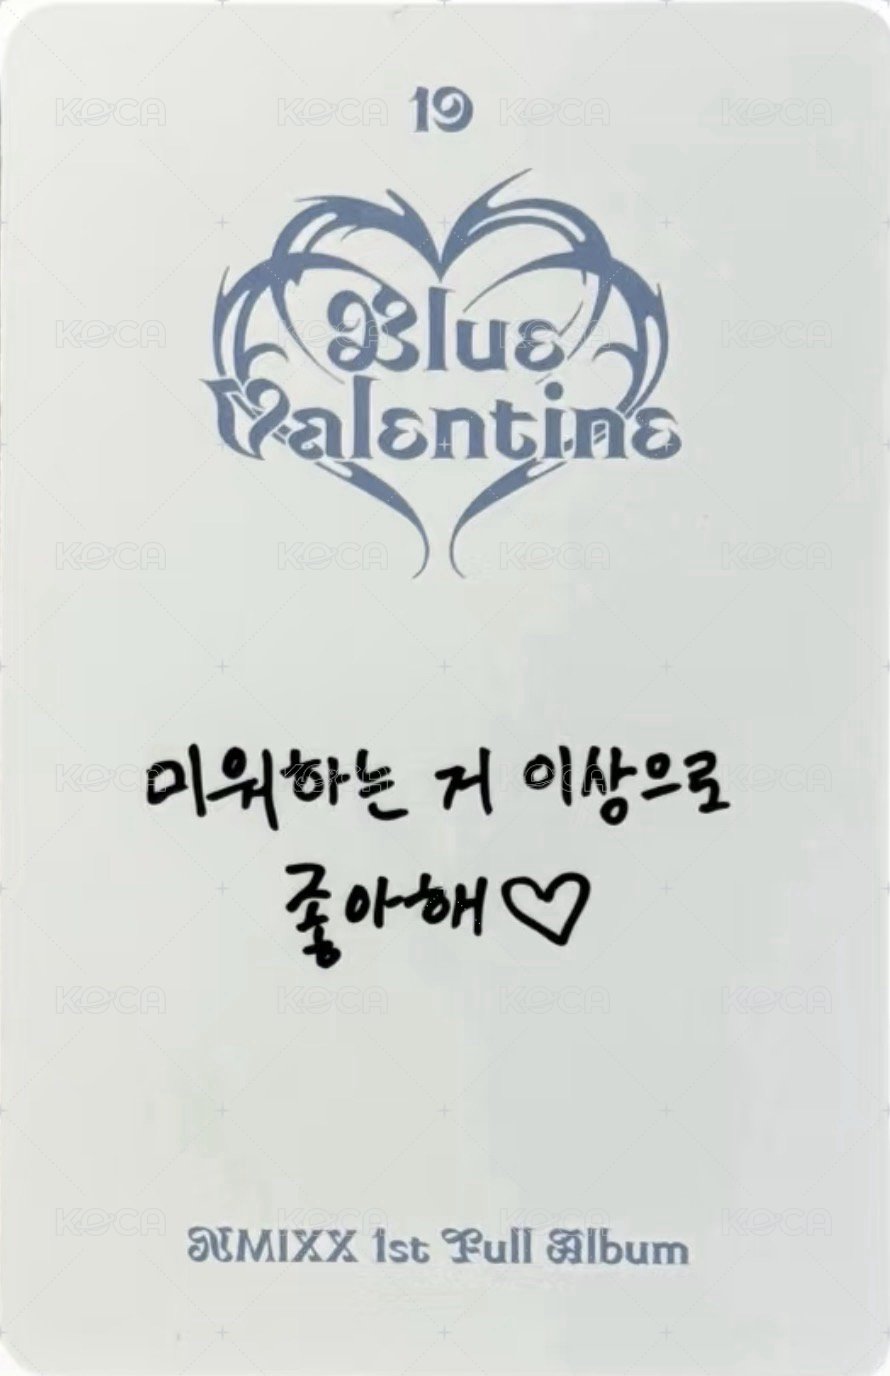 19
Blue
Valentine
미워하는 거 이상으로
좋아해♡
NMIXX 1st Full Album
KOCA